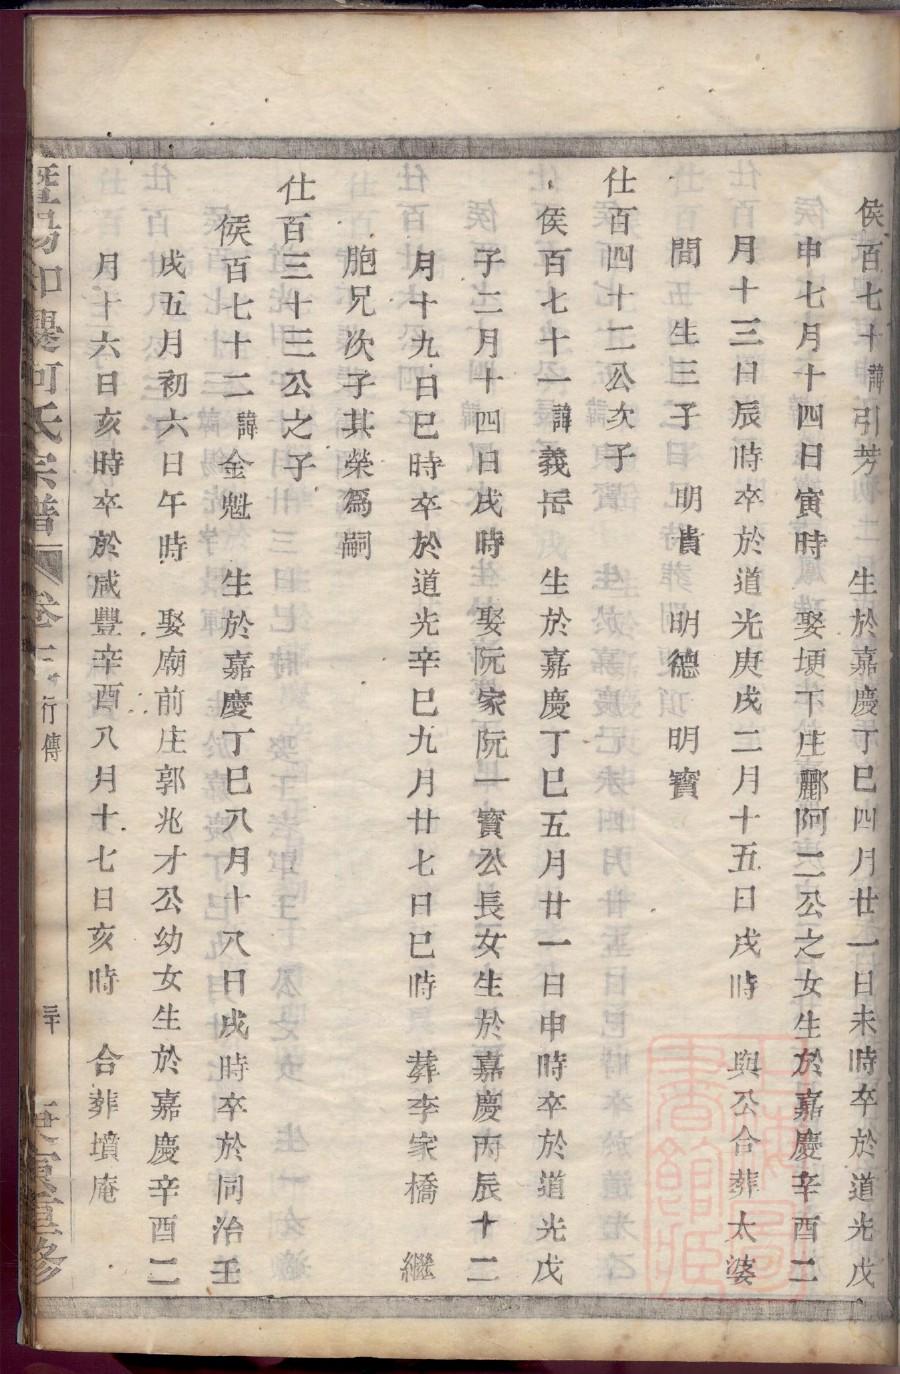 侯百七十諱引芳　生於嘉慶丁巳四月廿一日未時卒於道光戊
申七月十四日寅時　娶埂下庄酈阿二公之女生於嘉慶辛酉二
月十三日辰時卒於道光庚戌二月十五日戌時　與公合葬太婆
間　生三子　明貴　明德　明寶
仕百四十二公次子
侯百七十一諱義岳　生於嘉慶丁巳五月廿一日申時卒於道光戊
子二月十四日戌時　娶阮家阮一寶公長女生於嘉慶丙辰十二
月十九日巳時卒於道光辛巳九月廿七日巳時　葬李家橋　繼
胞兄次子其榮爲嗣
仕百三十三公之子
侯百七十二諱金魁　生於嘉慶丁巳八月十八日戌時卒於同治壬
戌五月初六日午時　娶廟前庄郭兆才公幼女生於嘉慶辛酉二
月十六日亥時卒於咸豐辛酉八月十七日亥時　合葬墳庵
暨陽和嚊何氏宗譜　卷　行傳　三十　重修